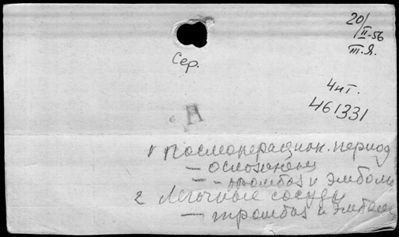 20/II-56
III-Я.
Сер.
Чит.
461331
1 Послеоперацион. период
— осложнения
— тромбоз и эмболи
2 Легочные сосуды
— тромбоз и эмболи